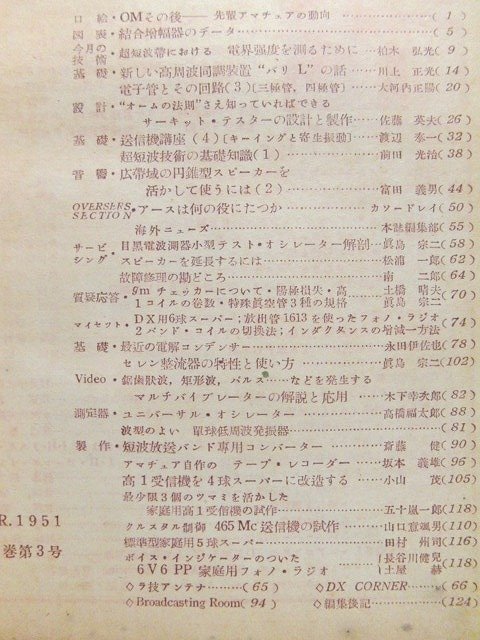 口絵・OMその後── 先輩アマチュアの動向 ……………( 1 )
図表・結合増幅器のデータ……………………( 5 )
今月の技術・超短波帯における 電界強度を測るために…柏木 弘光( 9 )
基礎・新しい高周波同調装置“バリL”の話……川上 正光(14)
電子管とその回路(3)[三極管，四極管]…大河内正陽(20)
設計・“オームの法則”さえ知っていればできる
サーキット・テスターの設計と製作……佐藤 英夫(26)
基礎・送信機講座(4)[キーイングと寄生振動]……渡辺 泰一(32)
超短波技術の基礎知識(1)……………前田 光治(38)
音響・広帯域の円錐型スピーカーを
活かして使うには(2)……………富田 義男(44)
OVERSERS SECTION・アースは何の役にたつか……カソードレイ(50)
海外ニューズ……………本誌編集部(55)
サービシング・目黒電波測器小型テスト・オシレーター解剖…眞島 宗二(58)
スピーカーを延長するには……………松浦 一郎(62)
故障修理の勘どころ……………南 二郎(64)
質疑応答・gmチェッカーについて・陽極損失・高 ……土橋 晴夫
1コイルの巻数・特殊眞空管3種の規格 眞島 宗二(70)
マイセット・DX用6球スーパー；放出管1613を使ったフォノ・ラジオ
2バンド・コイルの切換法；インダクタンスの増減一方法(74)
基礎・最近の電解コンデンサー……………永田伊佐也(78)
セレン整流器の特性と使い方……………眞島 宗二(102)
Video・鋸歯狀波，矩形波，パルス……などを発生する
マルチバイブレーターの解説と応用……木下幸次郎(82)
測定器・ユニバーサル・オシレーター……………高橋福太郎(88)
波型のよい 單球低周波発振器……………(81)
製作・短波放送バンド專用コンバーター……………斎藤 健(90)
アマチュア自作の テープ・レコーダー……坂本 義雄(96)
高1受信機を4球スーパーに改造する……小山 茂(105)
最少限3個のツマミを活かした
家庭用高1受信機の試作……五十嵐一郎(118)
クルスタル制御 465Mc送信機の試作……山口意颯男(110)
標準型家庭用5球スーパー……………田村 州司(116)
ボイス・インジケーターのついた
6V6 PP 家庭用フォノ・ラジオ……長谷川健児 土屋 赫(118)
◇ラ技アンテナ………(65) ◇DX CORNER………(66)
◇Broadcasting Room(94) ◇編集後記…………(124)
R.1951
巻第3号